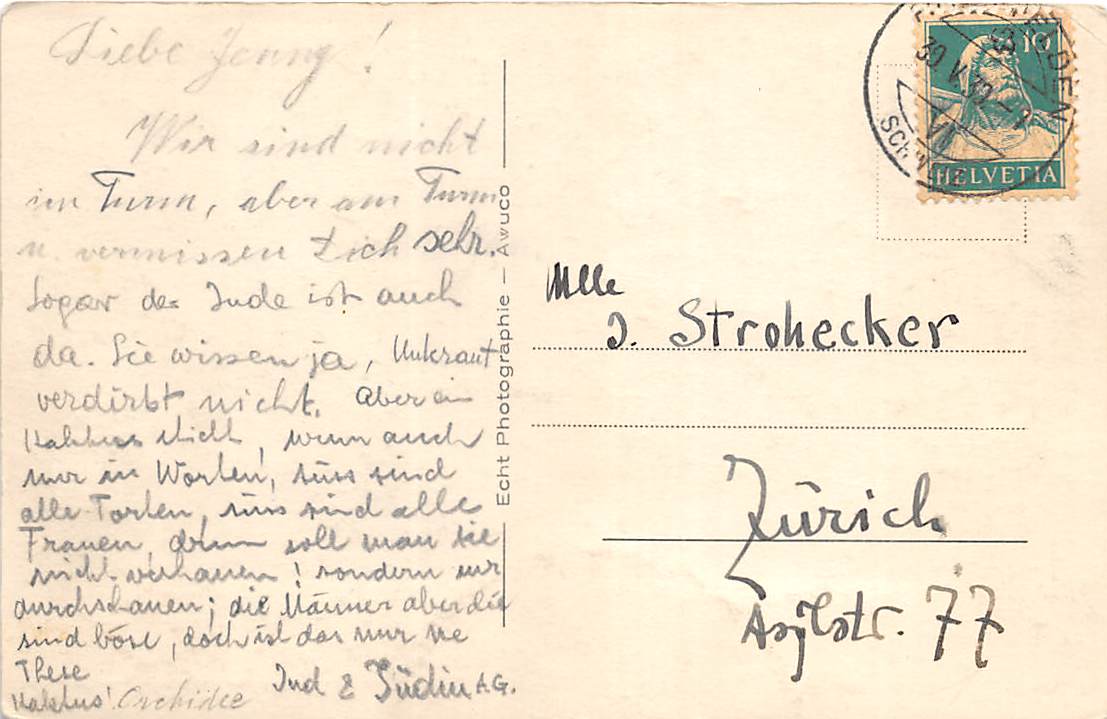 Liebe Jenny!
Wir sind nicht
im Turm, aber am Turm
u. vermissen Dich sehr.
Sogar der Jude ist auch
da. Sie wissen ja, Unkraut
verdirbt nicht. Aber ein
Kaktus sticht, wenn auch
nur in Worten, süss sind
alle Torten, süss sind alle
Frauen, drum soll man sie
nicht verhauen! sondern nur
durchschauen; die Männer aber die
sind böse, doch ist das nur ne
These
Kaktus! Orchidee
Jud & Jüdin A.G.
Echt Photographie — Awuco
30 V 32
SCHWYZ
10
HELVETIA
Mlle
J. Strohecker
Zürich
Asylstr. 77